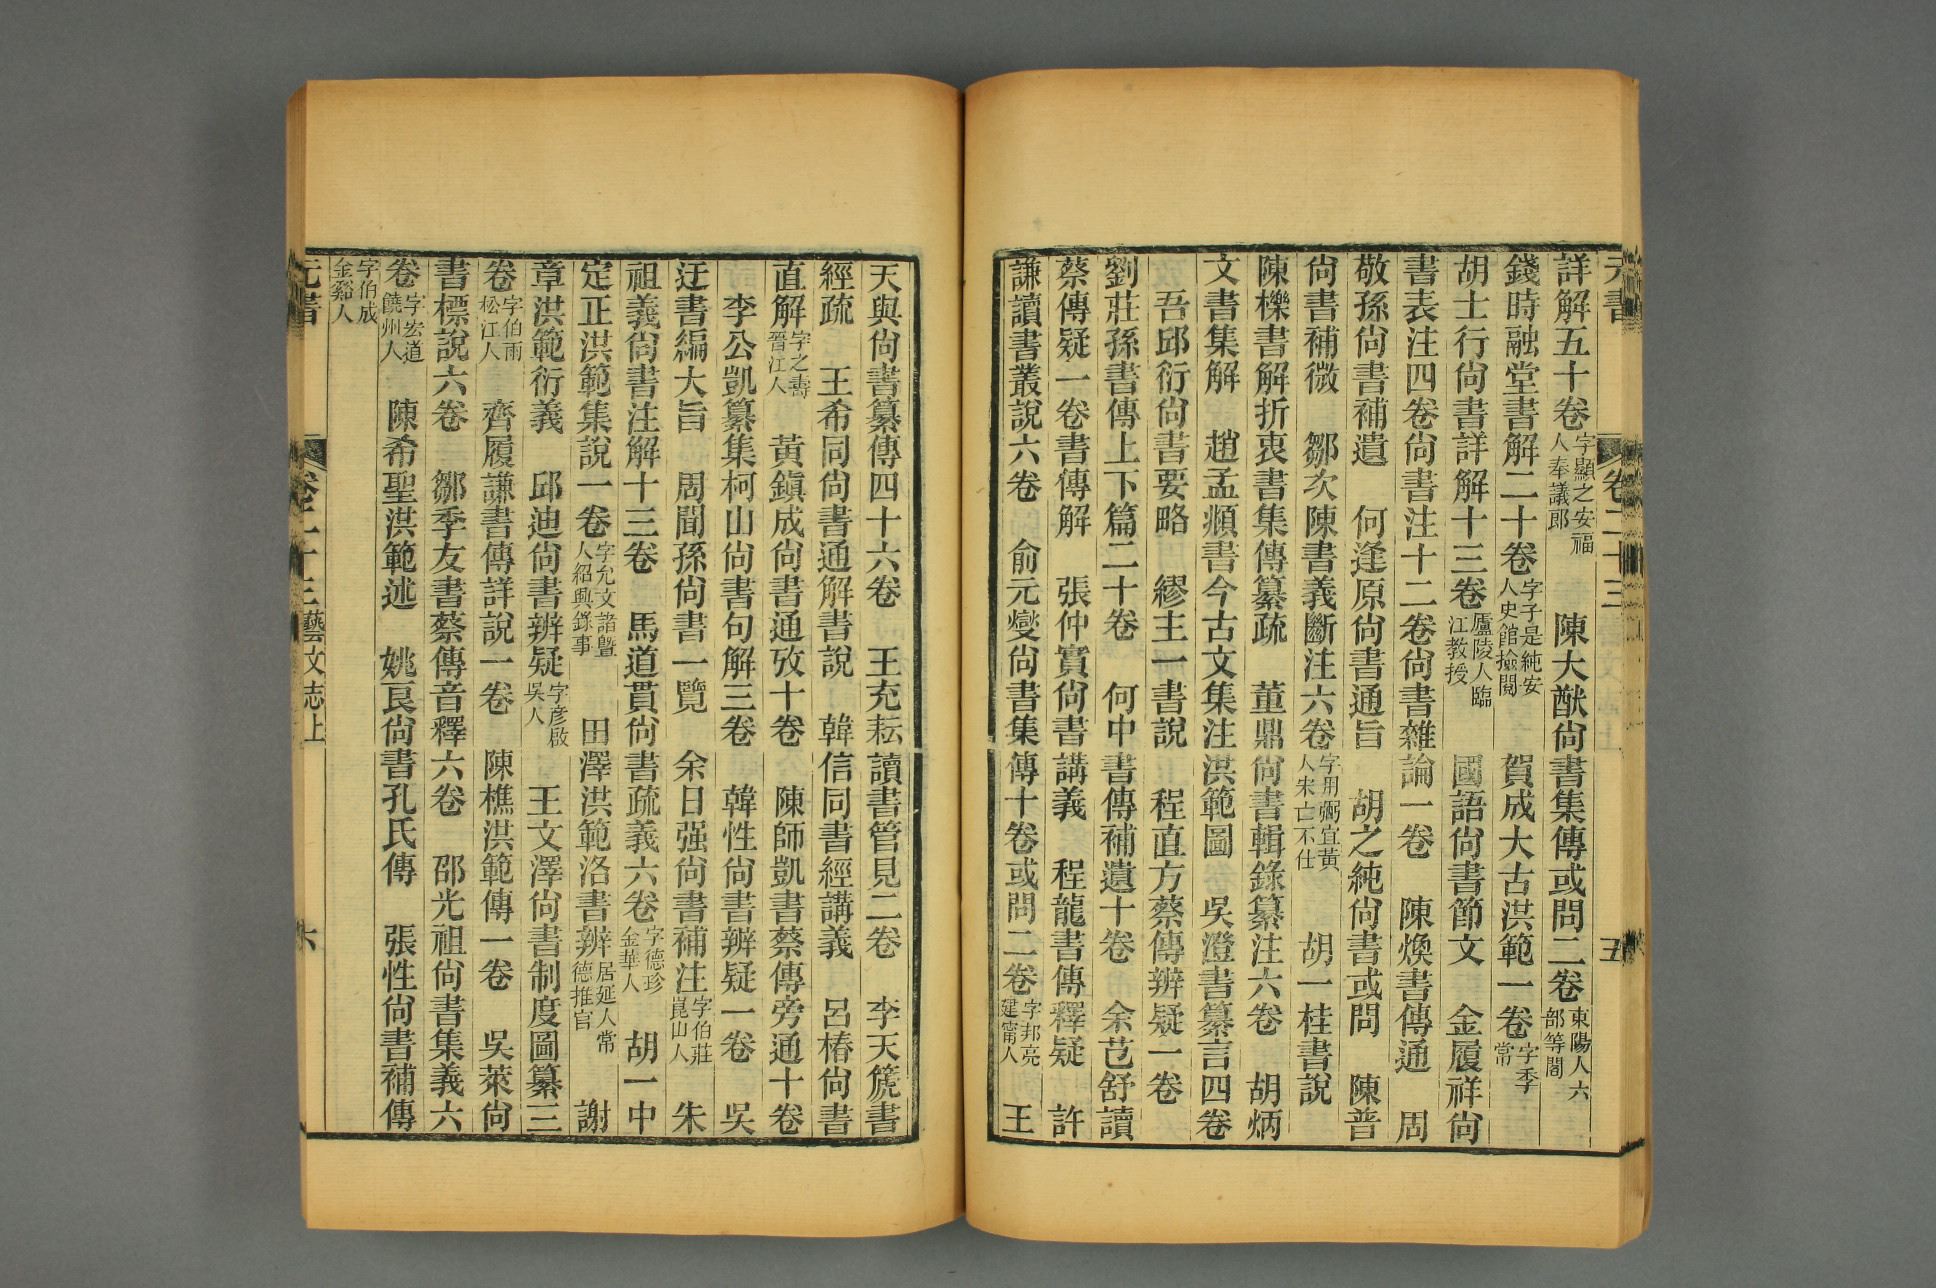 元書 卷二十三 五
詳解五十卷字顯之安福人奉議郎 陳大猷尚書集傳或問二卷東陽人六部等閣
錢時融堂書解二十卷字子是純安人史館撿閱 賀成大古洪範一卷字季常
胡士行尚書詳解十三卷廬陵人臨江教授 國語尚書節文 金履祥尚
書表注四卷尚書注十二卷尚書雜論一卷 陳煥書傳通 周
敬孫尚書補遺 何逢原尚書通旨 胡之純尚書或問 陳普
尚書補微 鄒次陳書義斷注六卷字用弼宜黃人宋亡不仕 胡一桂書說
陳櫟書解折衷書集傳纂疏 董鼎尚書輯錄纂注六卷 胡炳
文書集解 趙孟頫書今古文集注洪範圖 吳澄書纂言四卷
吾邱衍尚書要略 繆主一書說 程直方蔡傳辨疑一卷
劉莊孫書傳上下篇二十卷 何中書傳補遺十卷 余芑舒讀
蔡傳疑一卷書傳解 張仲實尚書講義 程龍書傳釋疑 許
謙讀書叢說六卷 俞元燮尚書集傳十卷或問二卷字邦亮建甯人 王
天與尚書纂傳四十六卷 王充耘讀書管見二卷 李天篪書
經疏 王希同尚書通解書說 韓信同書經講義 呂椿尚書
直解字之壽晉江人 黃鎮成尚書通攷十卷 陳師凱書蔡傳旁通十卷
李公凱纂集柯山尚書句解三卷 韓性尚書辨疑一卷 吳
迂書編大旨 周聞孫尚書一覽 余日强尚書補注字伯莊崑山人 朱
祖義尚書注解十三卷 馬道貫尚書疏義六卷字德珍金華人 胡一中
定正洪範集說一卷字允文諸曁人紹興錄事 田澤洪範洛書辨居延人常德推官 謝
章洪範衍義 邱迪尚書辨疑字彥啟吳人 王文澤尚書制度圖纂三
卷字伯雨松江人 齊履謙書傳詳說一卷 陳樵洪範傳一卷 吳萊尚
書標說六卷 鄒季友書蔡傳音釋六卷 邵光祖尚書集義六
卷字宏道饒州人 陳希聖洪範述 姚良尚書孔氏傳 張性尚書補傳
字伯成金谿人
元書 卷二十三 藝文志上 六